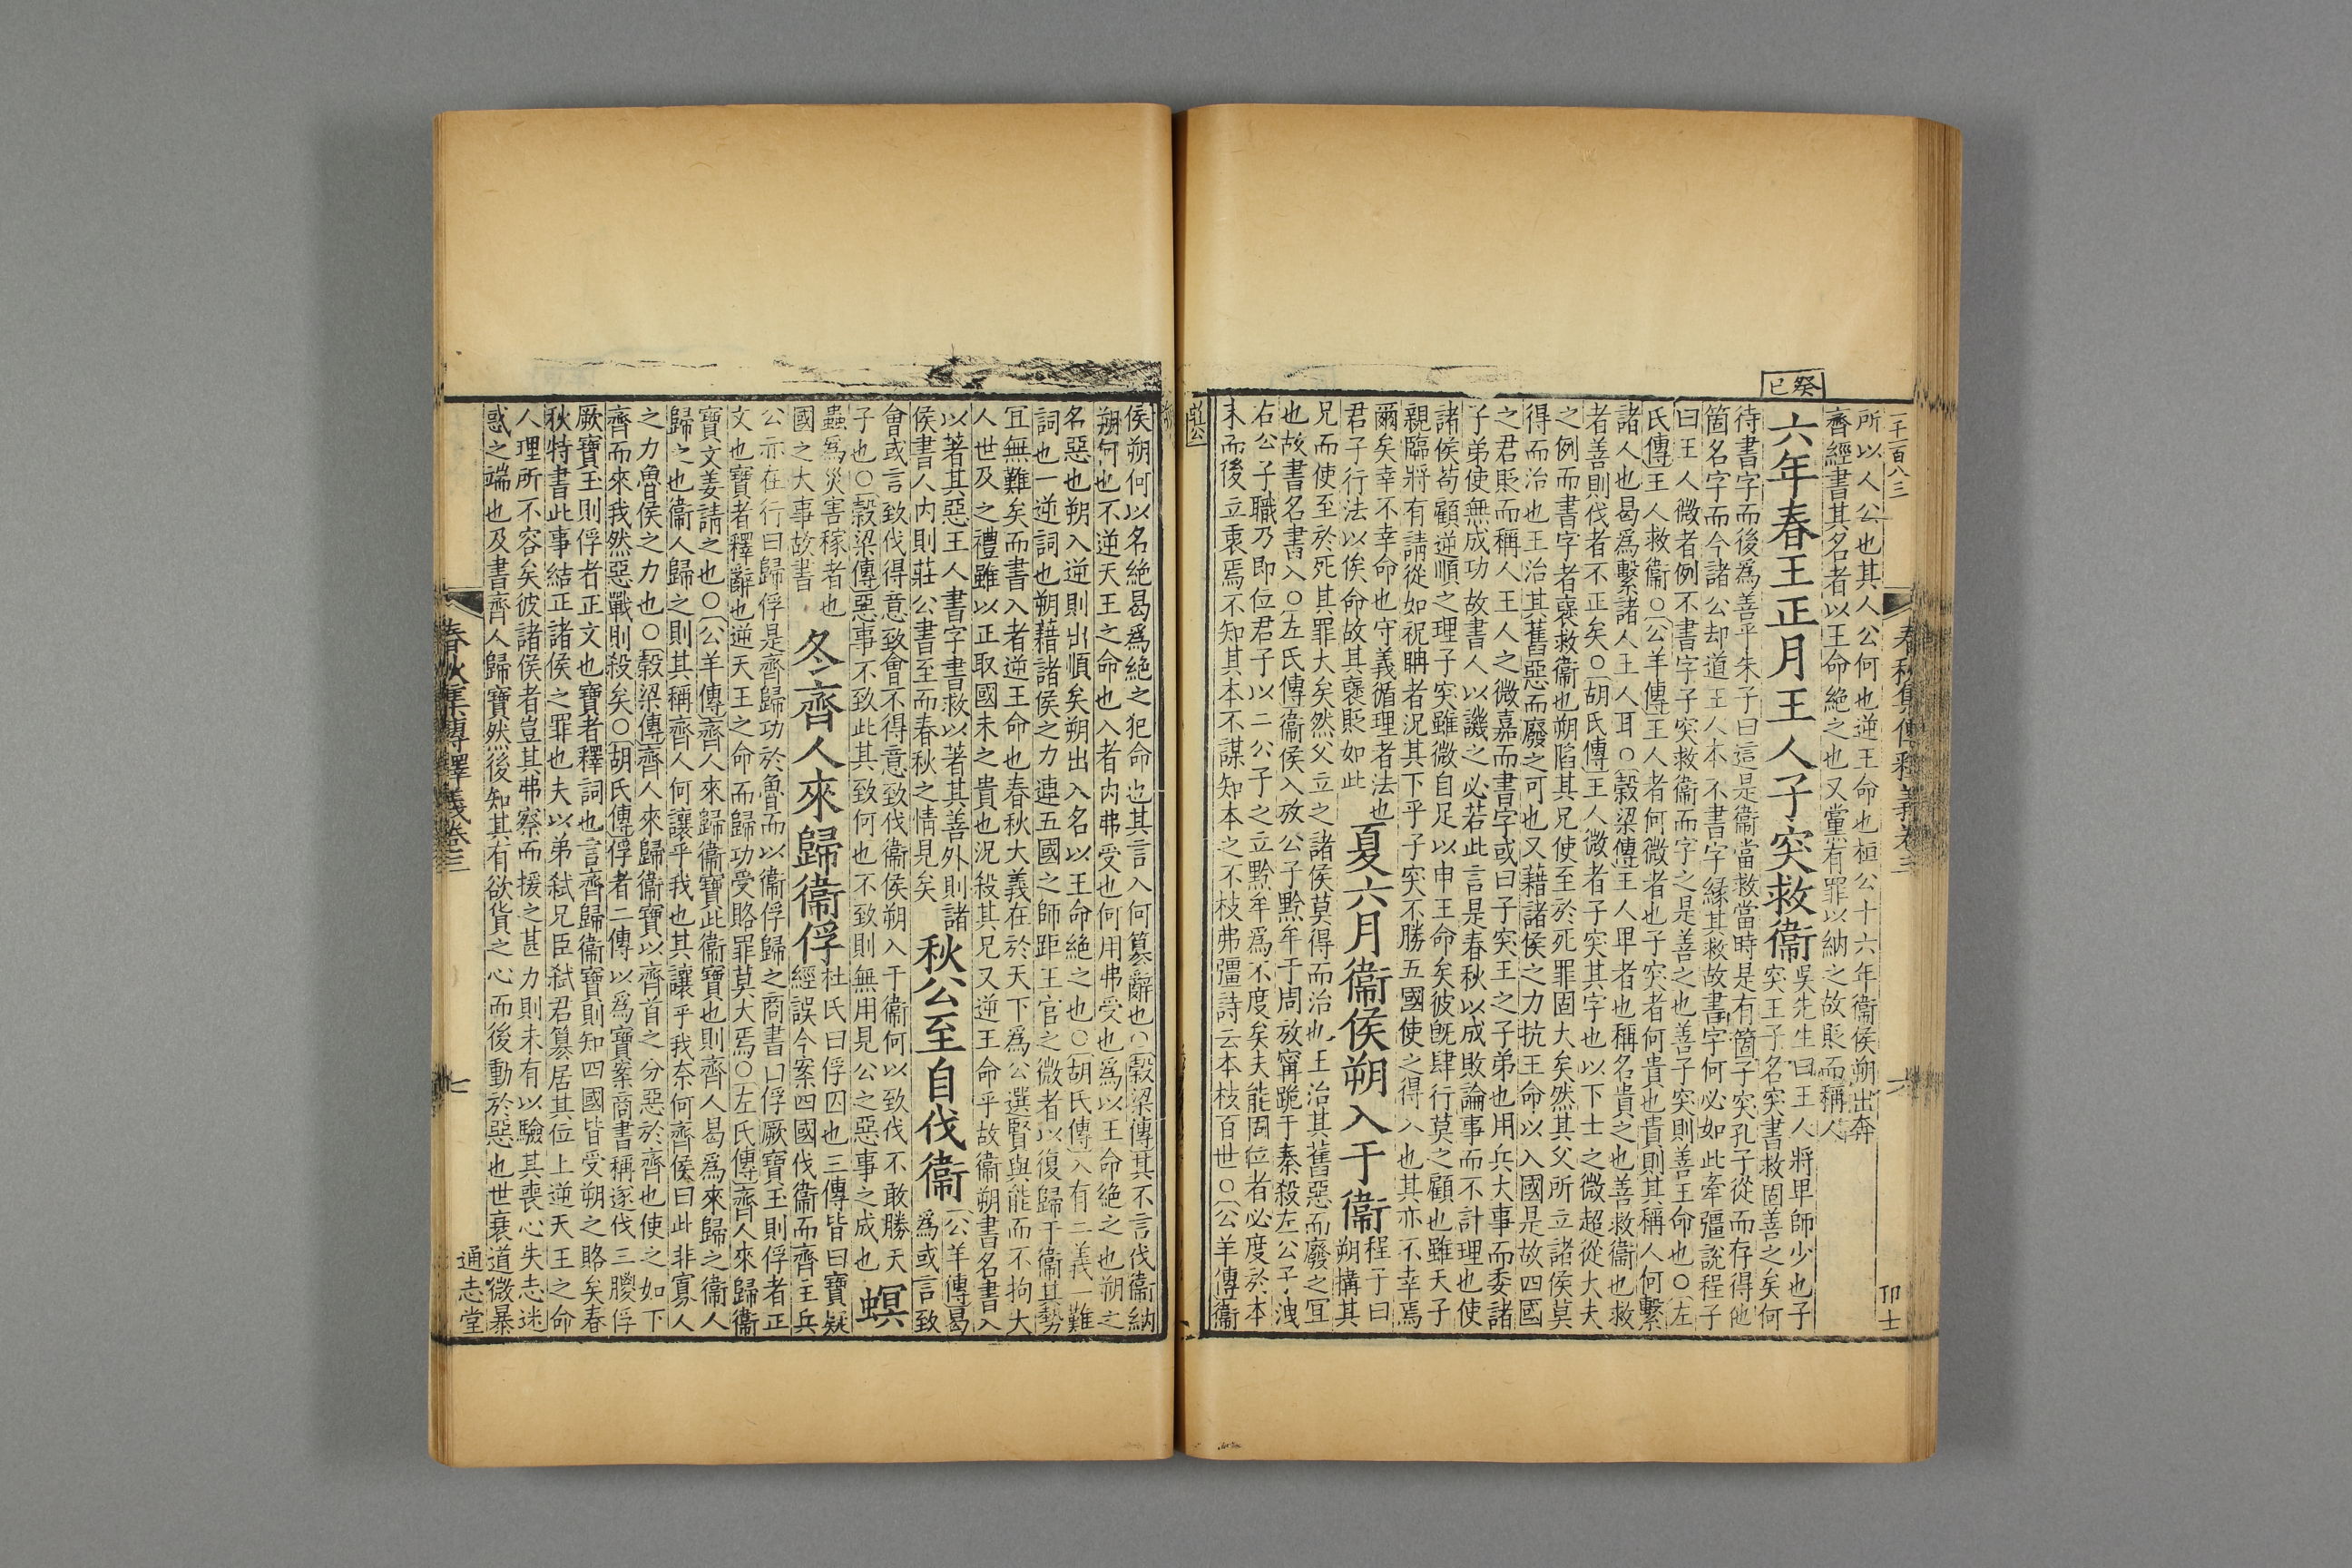 一千一百八三
春秋集傳釋義卷三
六
卬士
所以人公也其人公何也逆王命也桓公十六年衞侯朔出奔
齊經書其名者以王命絶之也又黨有罪以納之故貶而稱人
癸巳
六年春王正月王人子突救衞
吳先生曰王人將卑師少也子
突王子名突書救固善之矣何
待書字而後爲善乎朱子曰這是衞當救當時是有箇子突孔子從而存得他
箇名字而今諸公却道王人本不書字緣其救故書字何必如此牽彊說程子
曰王人微者例不書字子突救衞而字之是善之也善子突則善王命也○左
氏傳王人救衞○公羊傳王人者何微者也子突者何貴也貴則其稱人何繫
諸人也曷爲繫諸人王人耳○穀梁傳王人卑者也稱名貴之也善救衞也救
者善則伐者不正矣○胡氏傳王人微者子突其字也以下士之微超從大夫
之例而書字者襃救衞也朔陷其兄使至於死罪固大矣然其父所立諸侯莫
得而治也王治其舊惡而廢之可也又藉諸侯之力抗王命以入國是故四國
之君貶而稱人王人之微嘉而書字或曰子突王之子弟也用兵大事而委諸
子弟使無成功故書人以譏之必若此言是春秋以成敗論事而不計理也使
諸侯苟顧逆順之理子突雖微自足以申王命矣彼旣肆行莫之顧也雖天子
親臨將有請從如祝聃者況其下乎子突不勝五國使之得入也其亦不幸焉
爾矣幸不幸命也守義循理者法也
君子行法以俟命故其襃貶如此
夏六月衞侯朔入于衞
程子曰
朔搆其
兄而使至於死其罪大矣然父立之諸侯莫得而治也王治其舊惡而廢之宜
也故書名書入○左氏傳衞侯入放公子黔牟于周放甯跪于秦殺左公子洩
右公子職乃即位君子以二公子之立黔牟爲不度矣夫能固位者必度於本
末而後立衷焉不知其本不謀知本之不枝弗彊詩云本枝百世○公羊傳衞
莊公
侯朔何以名絶曷爲絶之犯命也其言入何簒辭也○穀梁傳其不言伐衞納
朔何也不逆天王之命也入者内弗受也何用弗受也爲以王命絶之也朔之
名惡也朔入逆則出順矣朔出入名以王命絶之也○胡氏傳入有二義一難
詞也一逆詞也朔藉諸侯之力連五國之師距王官之微者以復歸于衞其勢
宜無難矣而書入者逆王命也春秋大義在於天下爲公選賢與能而不拘大
人世及之禮雖以正取國未之貴也況殺其兄又逆王命乎故衞朔書名書入
以著其惡王人書字書救以著其善外則諸
侯書人内則莊公書至而春秋之情見矣
秋公至自伐衞
公羊傳曷
爲或言致
會或言致伐得意致會不得意致伐衞侯朔入于衞何以致伐不敢勝天
子也○穀梁傳惡事不致此其致何也不致則無用見公之惡事之成也
螟
蟲爲災害稼者也
國之大事故書
冬齊人來歸衞俘
杜氏曰俘囚也三傳皆曰寶疑
經誤今案四國伐衞而齊主兵
公亦在行曰歸俘是齊歸功於魯而以衞俘歸之商書曰俘厥寶玉則俘者正
文也寶者釋辭也逆天王之命而歸功受賂罪莫大焉○左氏傳齊人來歸衞
寶文姜請之也○公羊傳齊人來歸衞寶此衞寶也則齊人曷爲來歸之衞人
歸之也衞人歸之則其稱齊人何讓乎我也其讓乎我奈何齊侯曰此非寡人
之力魯侯之力也○穀梁傳齊人來歸衞寶以齊首之分惡於齊也使之如下
齊而來我然惡戰則殺矣○胡氏傳俘者二傳以爲寶案商書稱遂伐三朡俘
厥寶玉則俘者正文也寶者釋詞也言齊歸衞寶則知四國皆受朔之賂矣春
秋特書此事結正諸侯之罪也夫以弟弑兄臣弑君簒居其位上逆天王之命
人理所不容矣彼諸侯者豈其弗察而援之甚力則未有以驗其喪心失志迷
惑之端也及書齊人歸寶然後知其有欲貨之心而後動於惡也世衰道微暴
春秋集傳釋義卷三
七
通志堂